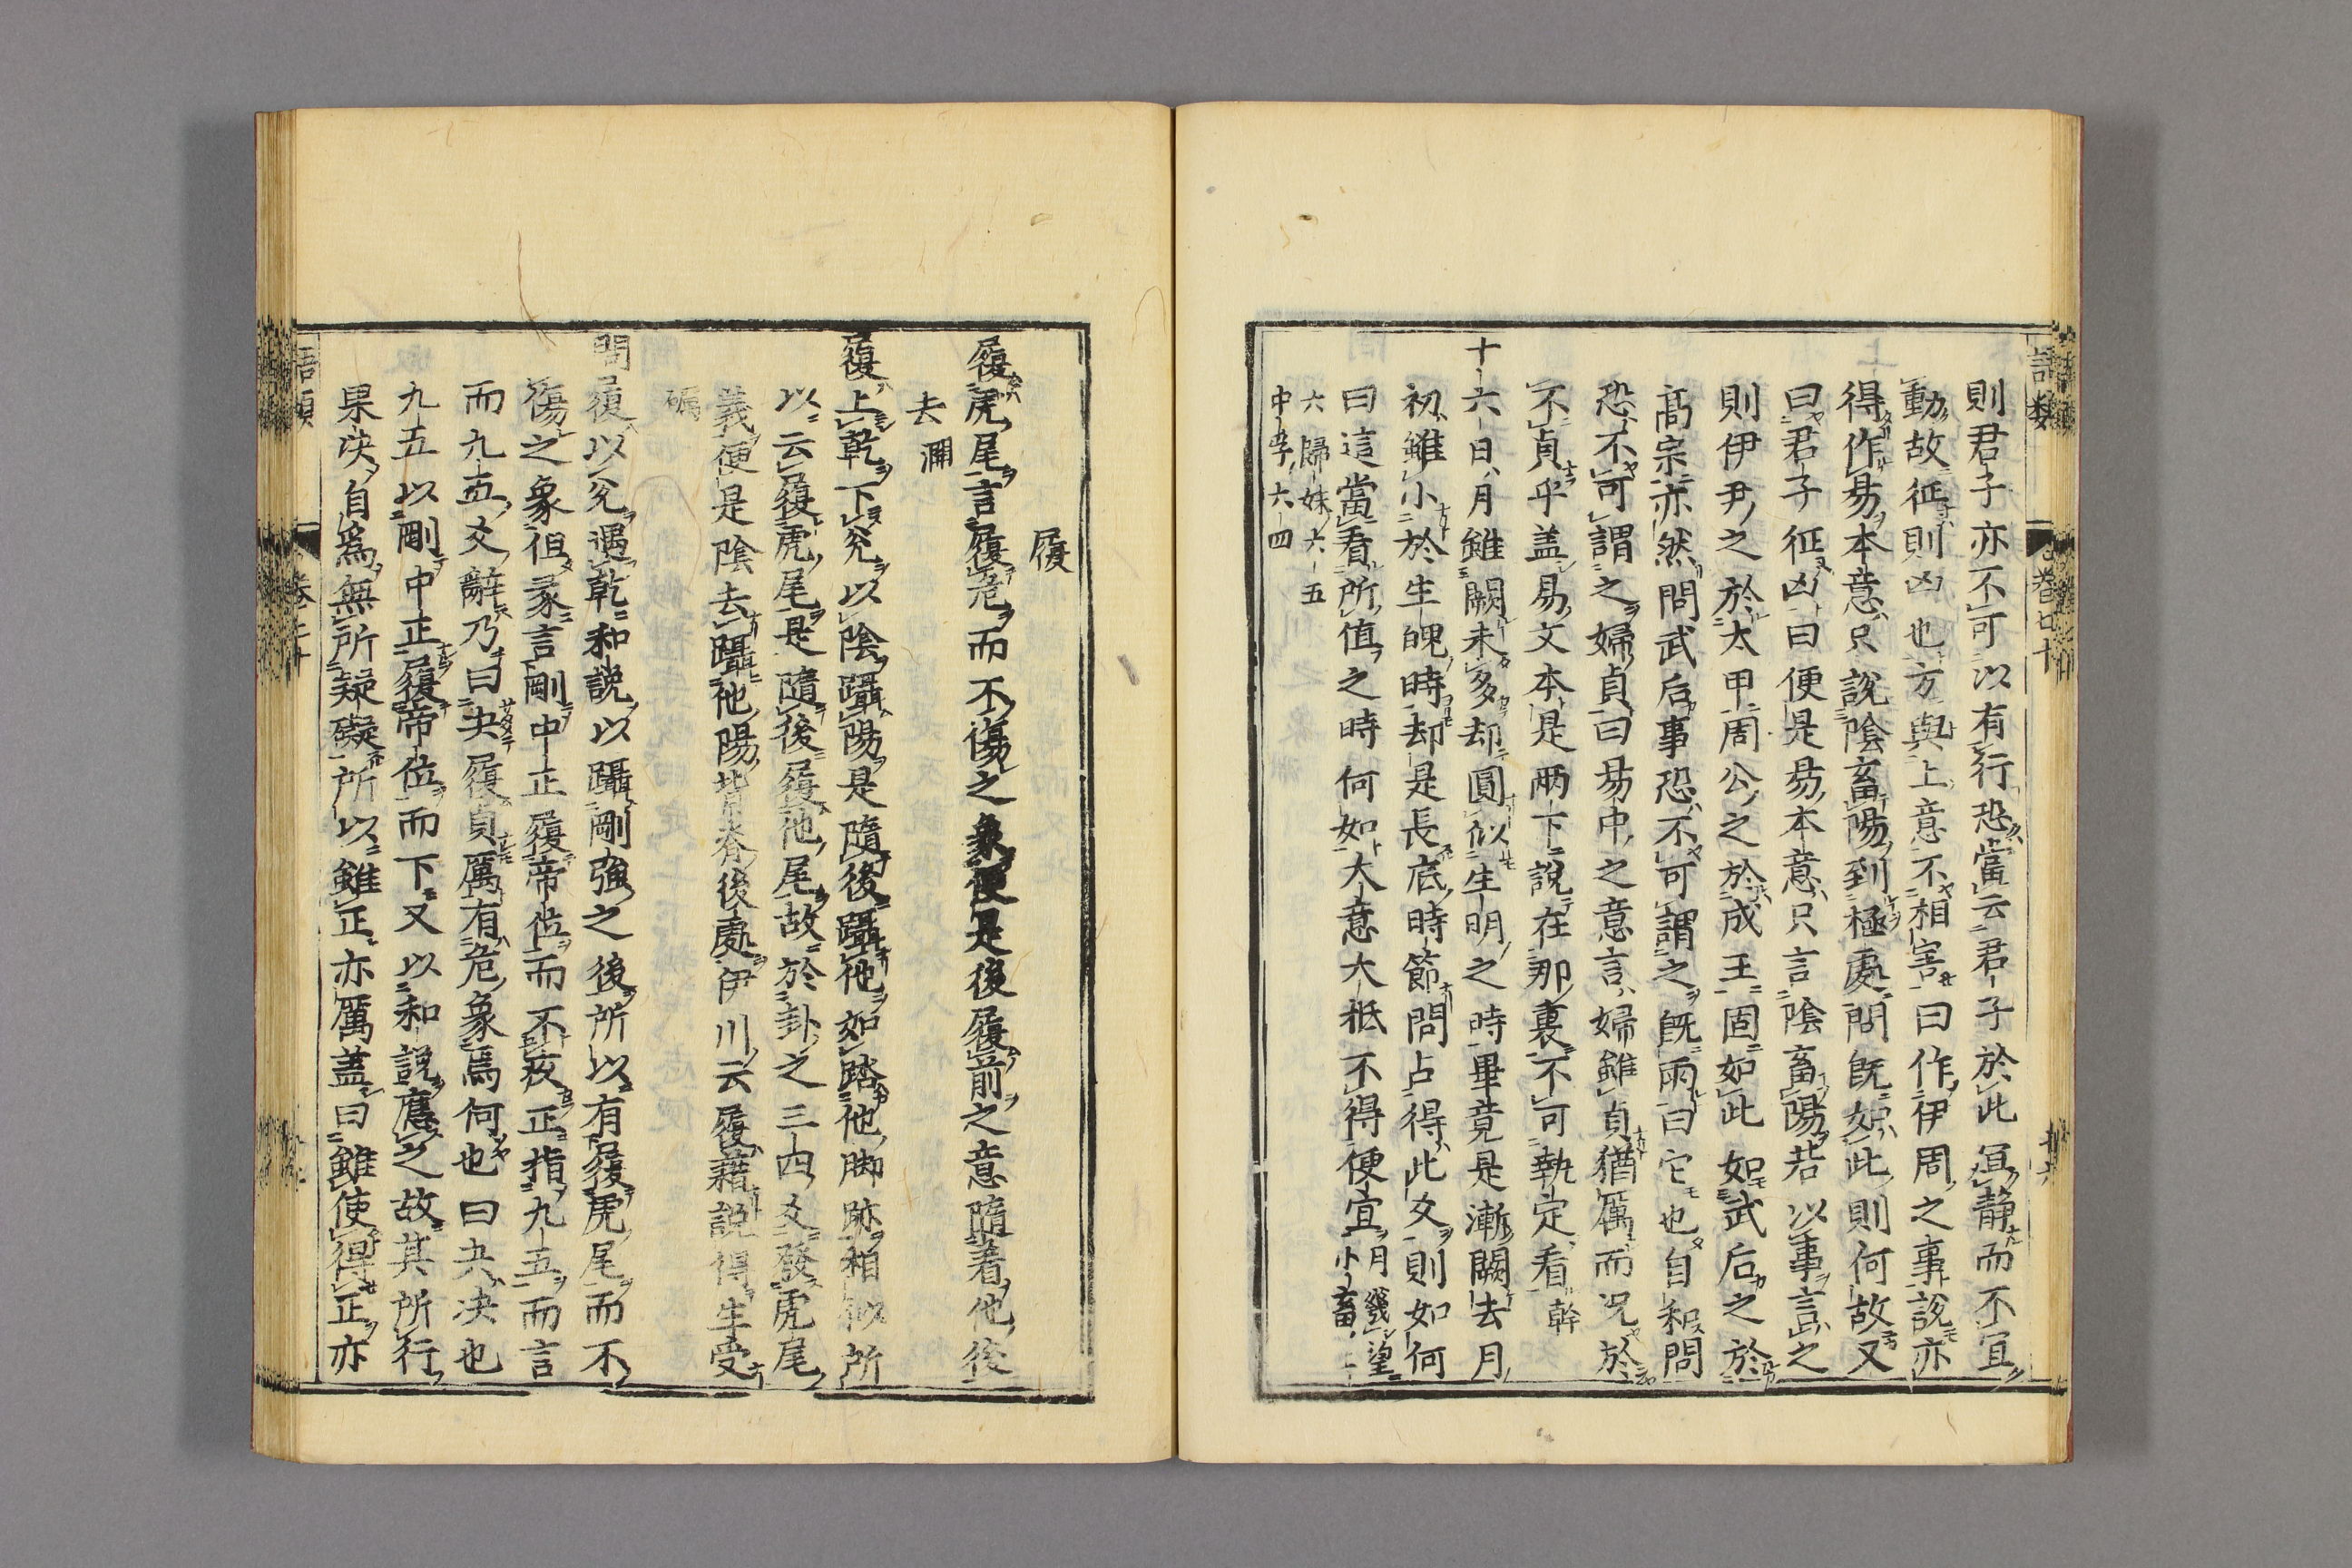 則君子亦不可以有行恐當云君子於此冝靜而不冝
動故征則凶也方與上意不相害曰作伊周之事說亦
得作易本意只說陰畜陽到極處問既如此則何故又
曰君子征凶曰便是易本意只言陰畜陽若以事言之
則伊尹之於太甲周公之於成王固如此如武后之於
高宗亦然問武后事恐不可謂之既雨曰它也自和問
恐不可謂之婦貞曰易中之意言婦雖貞猶厲而况於
不貞乎盖易文本是兩下說在那裏不可執定看 幹
十六日月雖闕未多却圓似生明之時畢竟是漸闕去月
初雖小於生魄時却是長底時節問占得此爻則如何
曰這當看所值之時何如大意大柢不得便宜 月幾望小畜上
六歸妹六五
中孚六四
語類 卷七十
履
履虎尾言履危而不傷之象便是後履前之意隨着他後
去 淵
履上乾下兌以陰躡陽是隨後躡他如踏他脚跡相似所
以云履虎尾是隨後履他尾故於卦之三四爻發虎尾
義便是陰去躡他陽背脊後處伊川云履藉說得生受
礪
問履以兌遇乾和說以躡剛強之後所以有履虎尾而不
傷之象但彖言剛中正履帝位而不疚正指九五而言
而九五爻辭乃曰夬履貞厲有危象焉何也曰夬决也
九五以剛中正履帝位而下又以和說應之故其所行
果决自爲無所疑礙所以雖正亦厲盖曰雖使得正亦
語類 卷七十